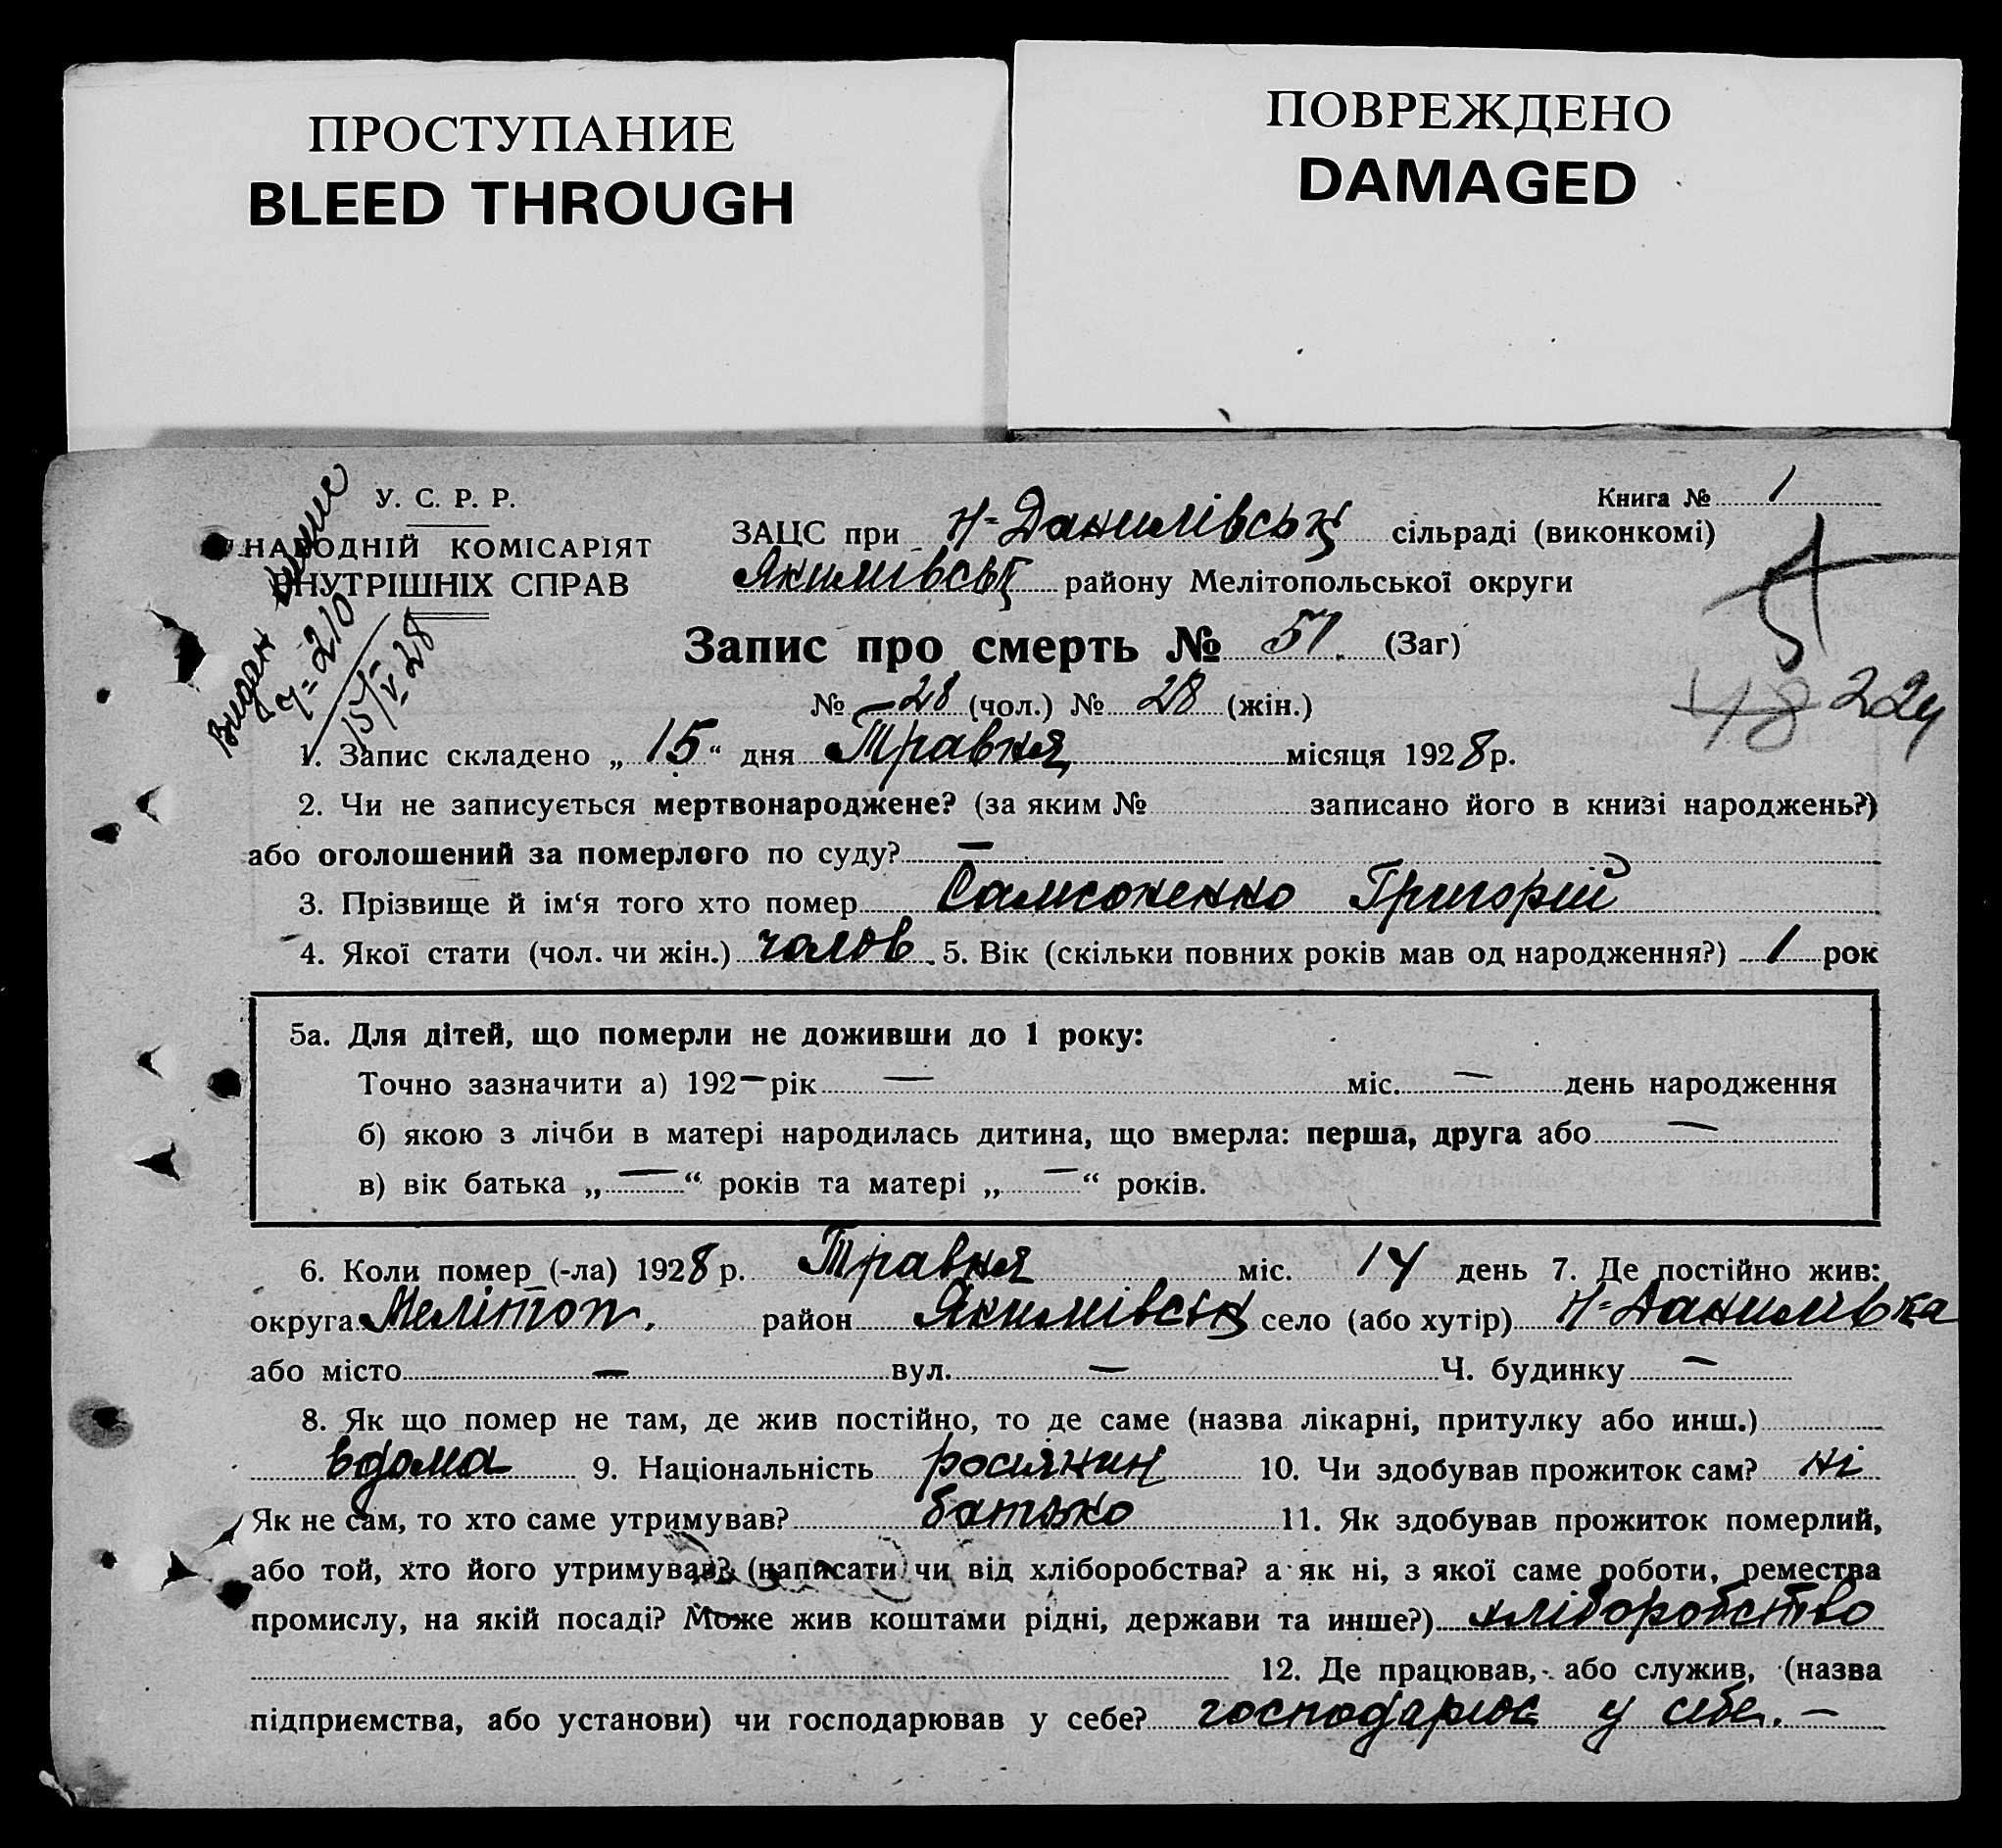 ПРОСТУПАНИЕ
BLEED THROUGH
ПОВРЕЖДЕНО
DAMAGED
У. С. Р. Р.
НАРОДНІЙ КОМІСАРІЯТ
ВНУТРІШНІХ СПРАВ
Видан
ч=210
15/V-28
Книга № 1
ЗАЦС при Н-Данилівськ сільраді (виконкомі)
Якимівськ району Мелітопольської округи
Запис про смерть № 51. (Заг)
№ 28 (чол.) № 28 (жін.)
48 224
1. Запис складено „ 15 “ дня Травня місяця 1928 р.
2. Чи не записується мертвонароджене? (за яким № записано його в книзі народжень?)
або оголошений за померлого по суду? —
3. Прізвище й ім‘я того хто помер Самсоненко Григорій
4. Якої стати (чол. чи жін.) чолов. 5. Вік (скільки повних років мав од народження?) 1 рок
5а. Для дітей, що померли не доживши до 1 року:
Точно зазначити а) 192— рік — міс. — день народження
б) якою з лічби в матері народилась дитина, що вмерла: перша, друга або —
в) вік батька „ — “ років та матері „ — “ років.
6. Коли помер (-ла) 1928 р. Травня міс. 14 день 7. Де постійно жив:
округа Мелітоп. район Якимівськ село (або хутір) Н-Данилівка
або місто — вул. — Ч. будинку —
8. Як що помер не там, де жив постійно, то де саме (назва лікарні, притулку або инш.)
вдома 9. Національність росіянин 10. Чи здобував прожиток сам? ні
Як не сам, то хто саме утримував? батько 11. Як здобував прожиток померлий,
або той, хто його утримував? (написати чи від хліборобства? а як ні, з якої саме роботи, ремества
промислу, на якій посаді? Може жив коштами рідні, держави та инше?) хліборобство
12. Де працював, або служив, (назва
підприємства, або установи) чи господарював у себе? господарює у себе. —